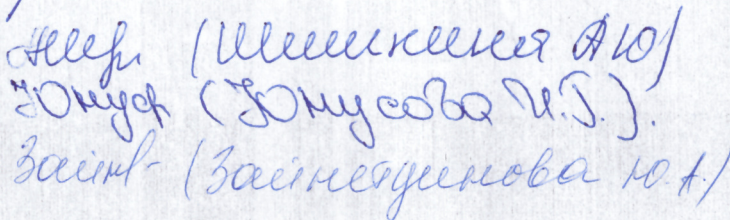 (Шишкина А Ю)
Юнус (Юнусова И.Г.).
Зайн- (Зайнетдинова Ю.А.)